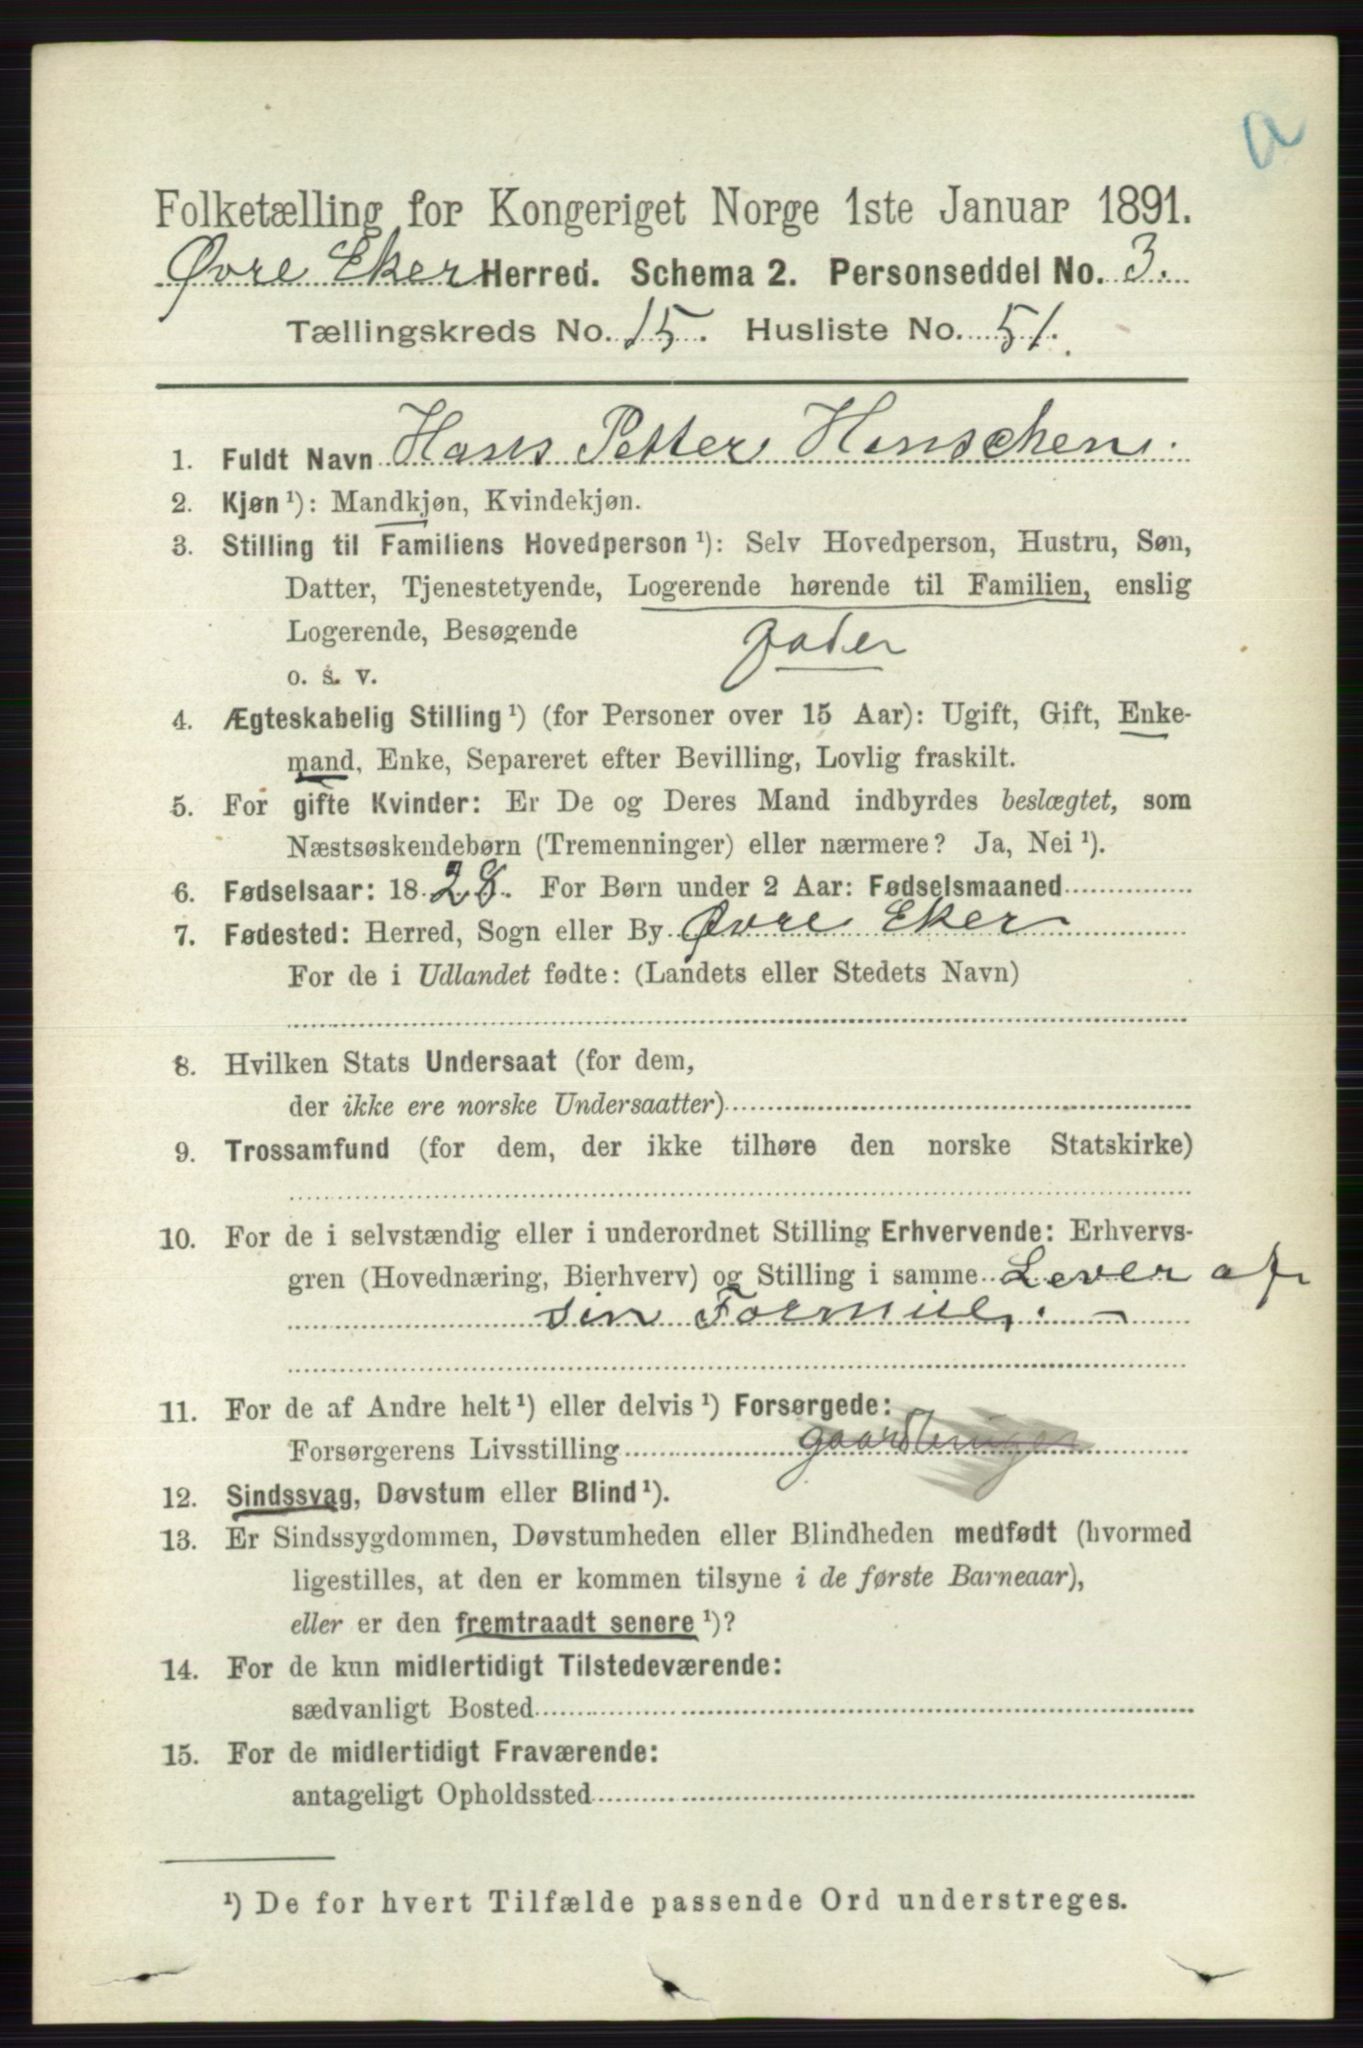 a
Folketælling for Kongeriget Norge 1ste Januar 1891.
Øvre Eker Herred. Schema 2. Personseddel No. 3.
Tællingskreds No. 15. Husliste No. 51.
1. Fuldt Navn Hans Petter Henschen.
2. Kjøn ¹): Mandkjøn, Kvindekjøn.
3. Stilling til Familiens Hovedperson ¹): Selv Hovedperson, Hustru, Søn,
Datter, Tjenestetyende, Logerende hørende til Familien, enslig
Logerende, Besøgende
o. s. v.
4. Ægteskabelig Stilling ¹) (for Personer over 15 Aar): Ugift, Gift, Enke-
mand, Enke, Separeret efter Bevilling, Lovlig fraskilt.
5. For gifte Kvinder: Er De og Deres Mand indbyrdes beslægtet, som
Næstsøskendebørn (Tremenninger) eller nærmere? Ja, Nei ¹).
6. Fødselsaar: 1828. For Børn under 2 Aar: Fødselsmaaned
7. Fødested: Herred, Sogn eller By Øvre Eker
For de i Udlandet fødte: (Landets eller Stedets Navn)
8. Hvilken Stats Undersaat (for dem,
der ikke ere norske Undersaatter)
9. Trossamfund (for dem, der ikke tilhøre den norske Statskirke)
10. For de i selvstændig eller i underordnet Stilling Erhvervende: Erhvervs-
gren (Hovednæring, Bierhverv) og Stilling i samme Lever af
sin Formue. -
11. For de af Andre helt ¹) eller delvis ¹) Forsørgede:
Forsørgerens Livsstilling
12. Sindssvag, Døvstum eller Blind ¹).
13. Er Sindssygdommen, Døvstumheden eller Blindheden medfødt (hvormed
ligestilles, at den er kommen tilsyne i de første Barneaar),
eller er den fremtraadt senere ¹)?
14. For de kun midlertidigt Tilstedeværende:
sædvanligt Bosted
15. For de midlertidigt Fraværende:
antageligt Opholdssted
¹) De for hvert Tilfælde passende Ord understreges.